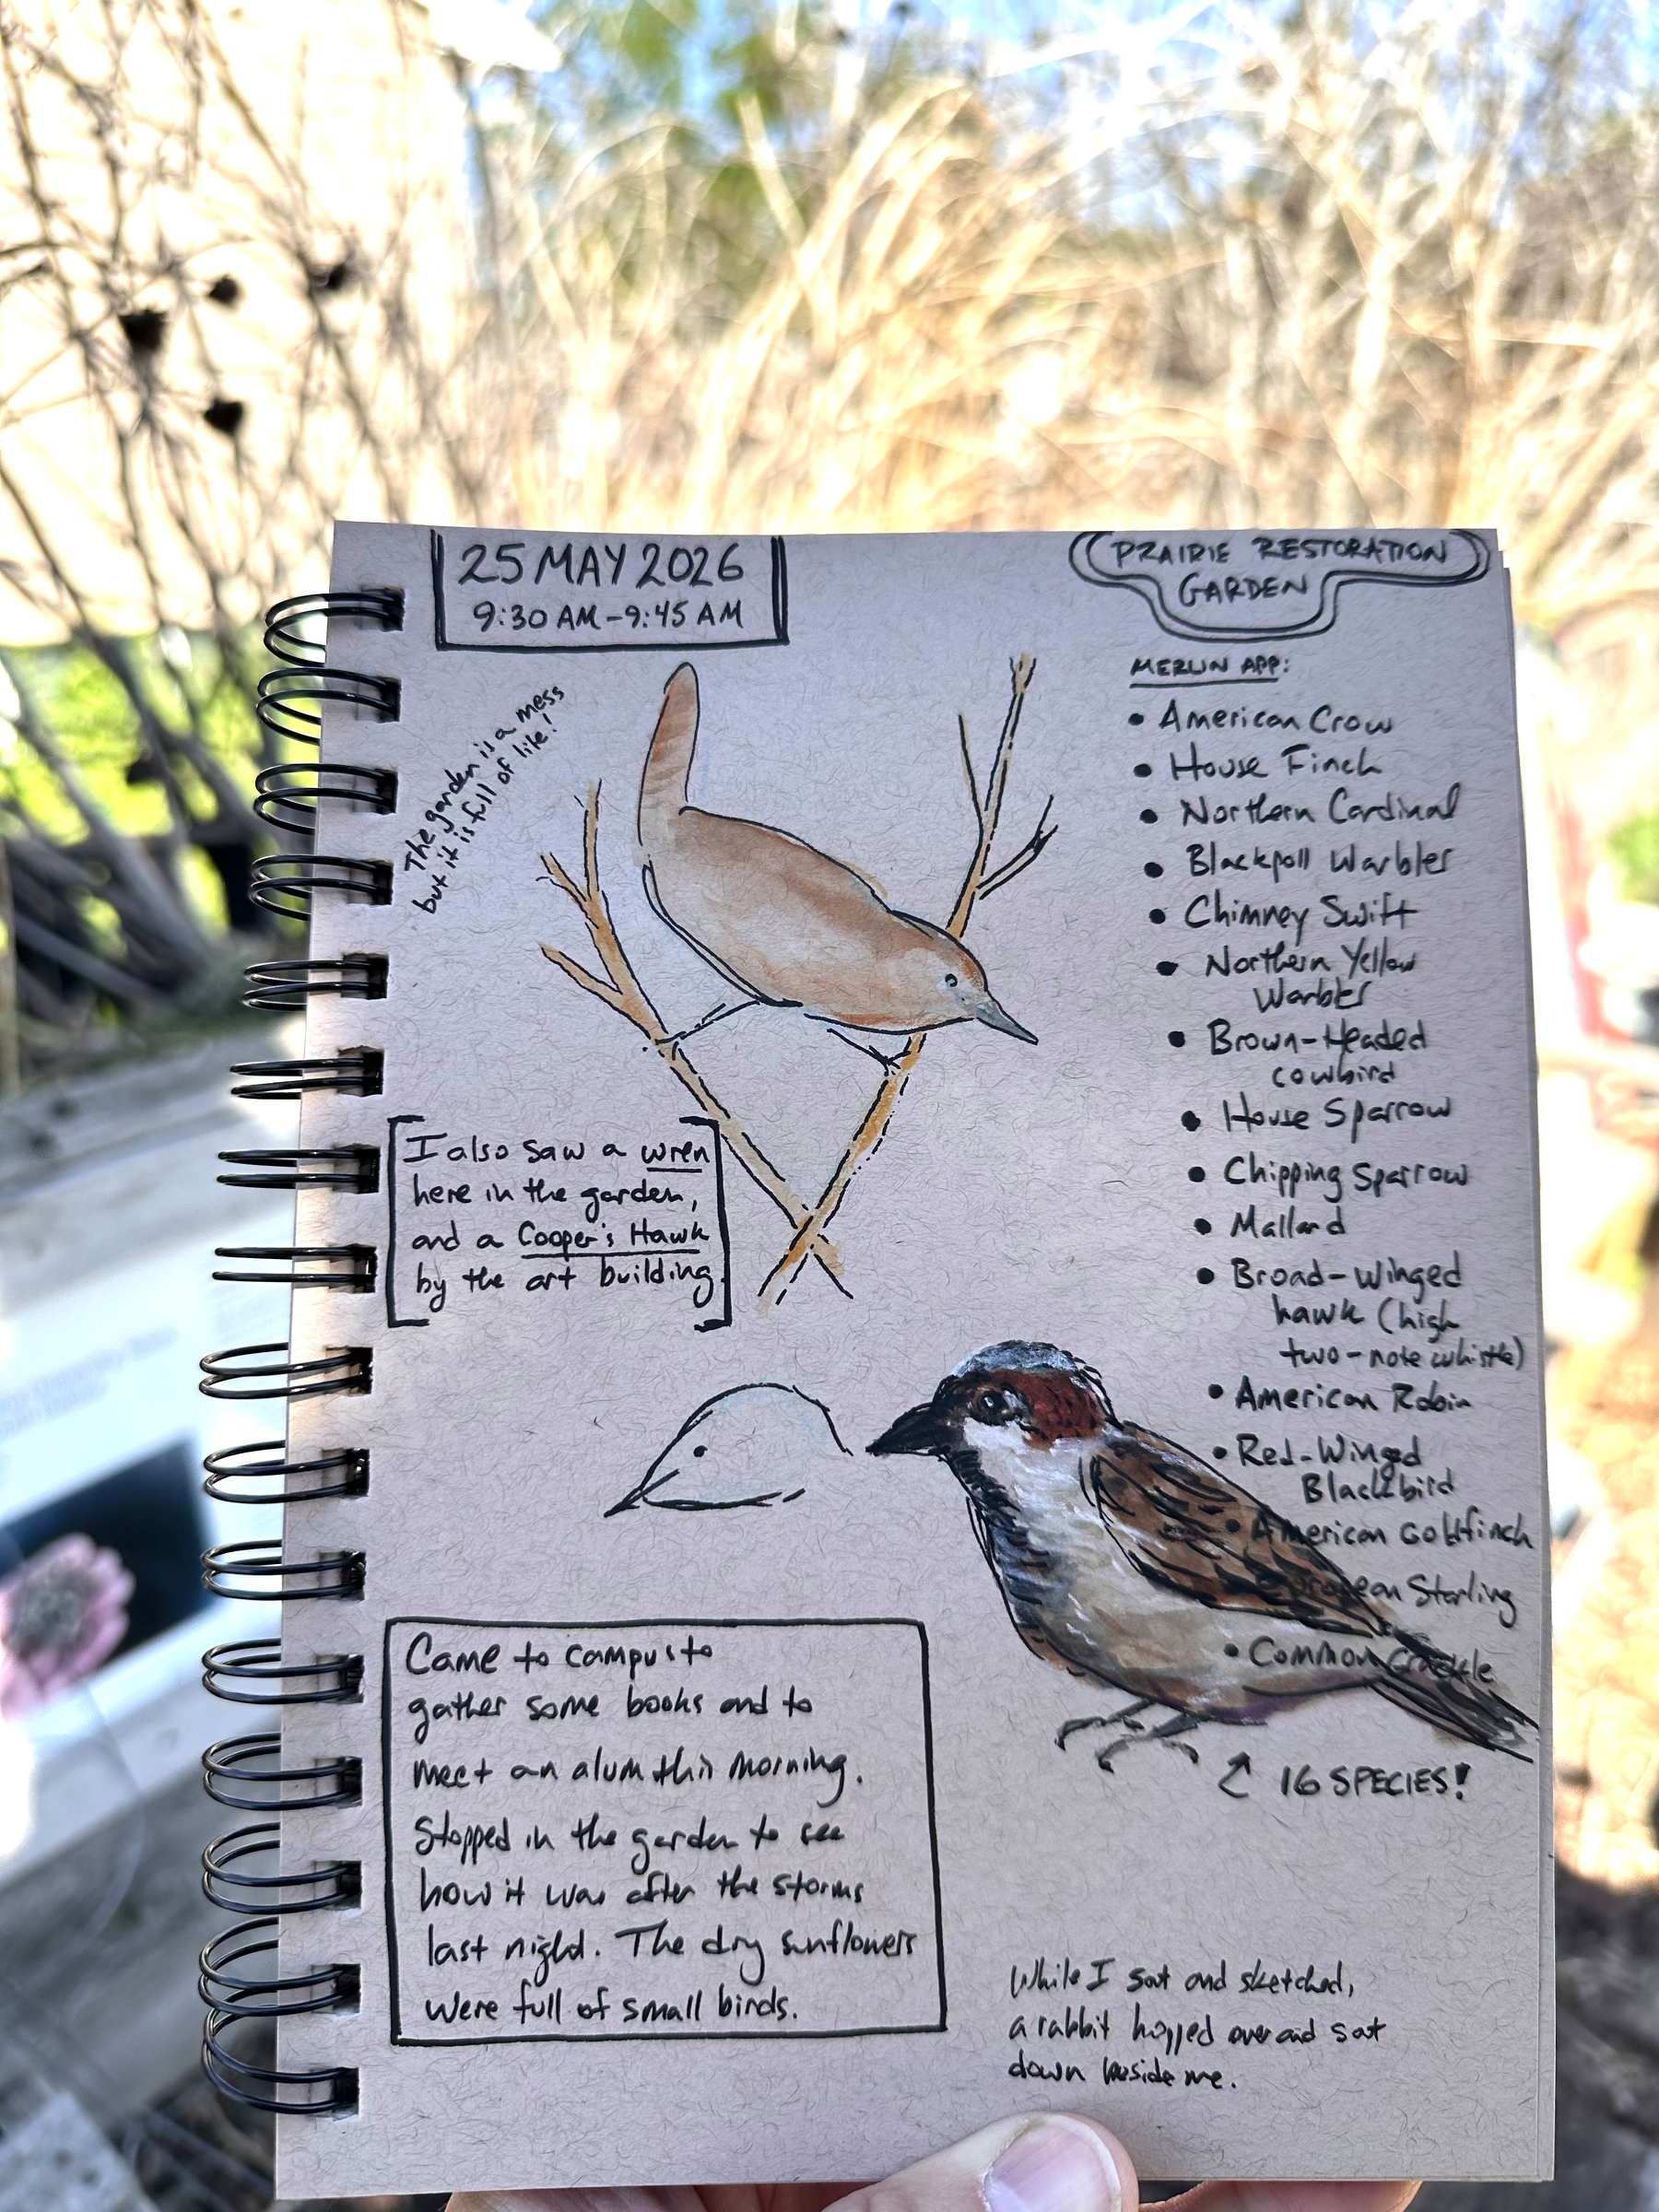 25 MAY 2026
9:30 AM-9:45 AM
PRAIRIE RESTORATION
GARDEN
The garden is a mess
but it is full of life!
MERLIN APP:
• American Crow
• House Finch
• Northern Cardinal
• Blackpoll Warbler
• Chimney Swift
• Northern Yellow
Warbler
• Brown-Headed
cowbird
• House Sparrow
• Chipping Sparrow
• Mallard
• Broad-Winged
hawk (high
two-note whistle)
• American Robin
• Red-Winged
Blackbird
• American Goldfinch
European Starling
• Common Grackle
16 SPECIES!
I also saw a wren
here in the garden,
and a Cooper's Hawk
by the art building.
Came to campus to
gather some books and to
meet an alum this morning.
Stopped in the garden to see
how it was after the storms
last night. The dry sunflowers
were full of small birds.
While I sat and sketched,
a rabbit hopped over and sat
down beside me.